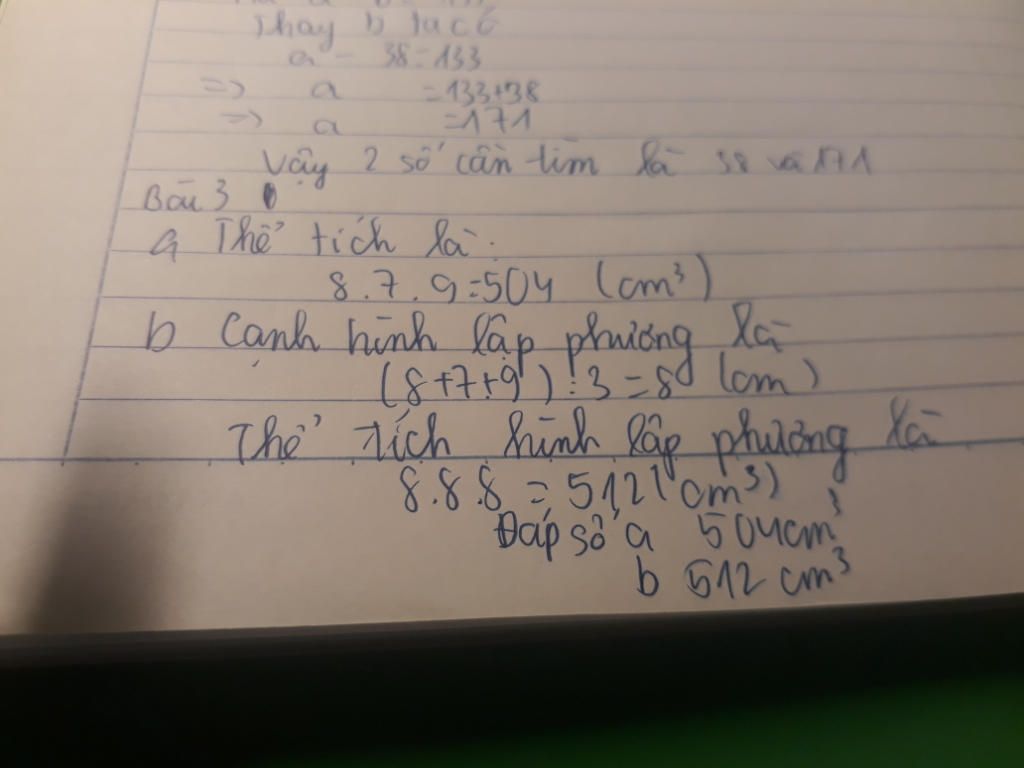 Thay b ta có
a - 38 = 133
=> a = 133+38
=> a = 171
Vậy 2 số cần tìm là 38 và 171
Bài 3
a Thể tích là:
8.7.9=504 (cm³)
b Cạnh hình lập phương là
(8+7+9):3=8 (cm)
Thể tích hình lập phương là
8.8.8 = 512 (cm³)
Đáp số a 504cm³
b 512 cm³